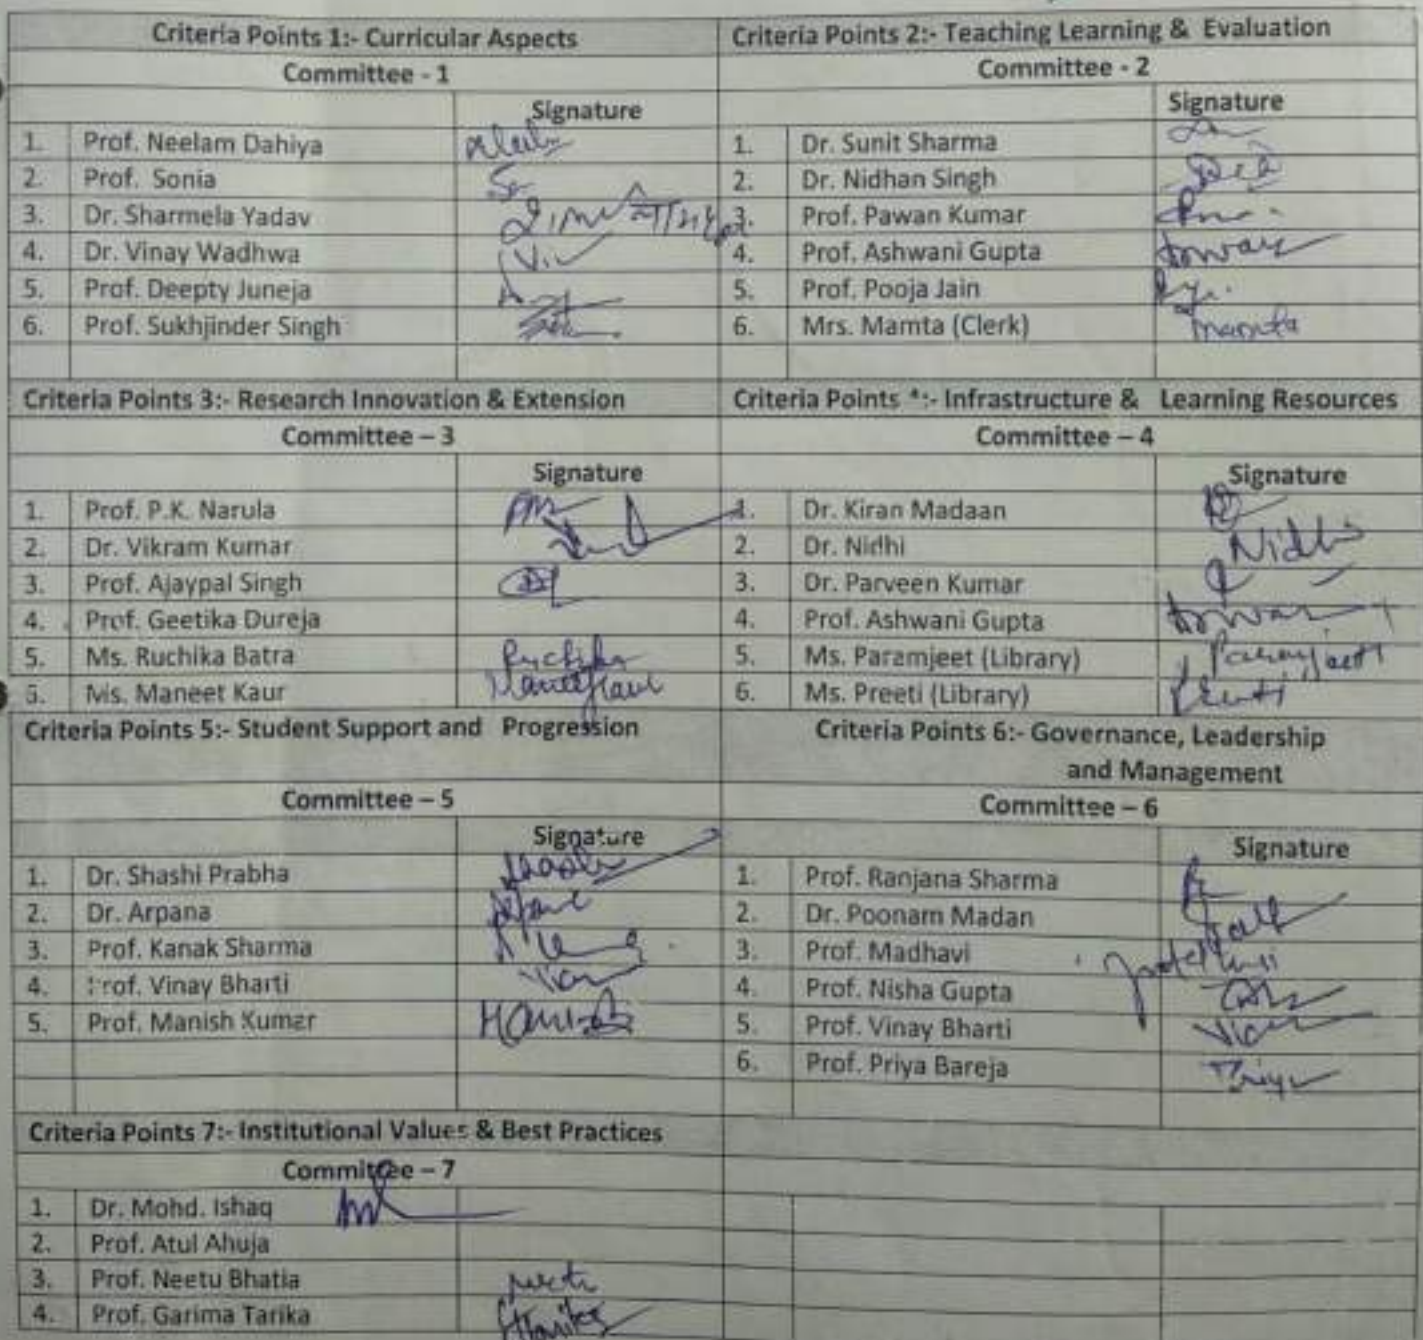 Criteria Points 1:- Curricular Aspects
Committee - 1
Signature
1. Prof. Neelam Dahiya
2. Prof. Sonia
3. Dr. Sharmela Yadav
4. Dr. Vinay Wadhwa
5. Prof. Deepty Juneja
6. Prof. Sukhjinder Singh
Criteria Points 2:- Teaching Learning & Evaluation
Committee - 2
Signature
1. Dr. Sunit Sharma
2. Dr. Nidhan Singh
3. Prof. Pawan Kumar
4. Prof. Ashwani Gupta
5. Prof. Pooja Jain
6. Mrs. Mamta (Clerk) Mamta
Criteria Points 3:- Research Innovation & Extension
Committee – 3
Signature
1. Prof. P.K. Narula
2. Dr. Vikram Kumar
3. Prof. Ajaypal Singh
4. Prof. Geetika Dureja
5. Ms. Ruchika Batra Ruchika
6. Ms. Maneet Kaur Maneet Kaur
Criteria Points *:- Infrastructure & Learning Resources
Committee – 4
Signature
1. Dr. Kiran Madaan
2. Dr. Nidhi Nidhi
3. Dr. Parveen Kumar
4. Prof. Ashwani Gupta
5. Ms. Paramjeet (Library) Paramjeet
6. Ms. Preeti (Library) Preeti
Criteria Points 5:- Student Support and Progression
Committee – 5
Signature
1. Dr. Shashi Prabha
2. Dr. Arpana
3. Prof. Kanak Sharma
4. Prof. Vinay Bharti
5. Prof. Manish Kumar
Criteria Points 6:- Governance, Leadership
and Management
Committee – 6
Signature
1. Prof. Ranjana Sharma
2. Dr. Poonam Madan
3. Prof. Madhavi
4. Prof. Nisha Gupta
5. Prof. Vinay Bharti
6. Prof. Priya Bareja Priya
Criteria Points 7:- Institutional Values & Best Practices
Committee – 7
1. Dr. Mohd. Ishaq
2. Prof. Atul Ahuja
3. Prof. Neetu Bhatia
4. Prof. Garima Tarika